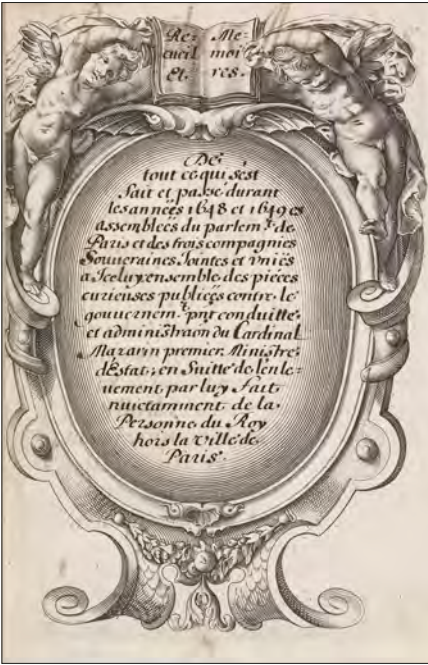 Re- Me-
cueil moi
Et. res.
De
tout ce qui s'est
fait et passé durant
les années 1648 et 1649 es
assembleés du parlem.t de
Paris et des trois compagnies
Souueraines Jointes et vniës
a Jceluy, ensemble des piéces
curienses publieés contre le
gouuernem.t conduitte
et administraon du Cardinal
Mazarin premier Ministre
dEstat, en Suitte de lenle-
uement par luy fait
nuictamment de la
Personne du Roy
hors la ville de
Paris.